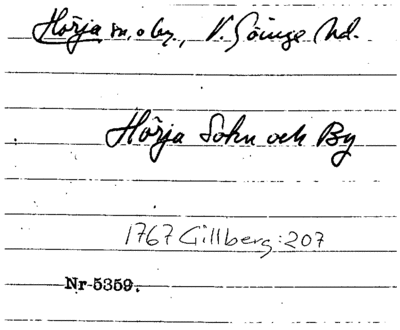 Hörja sn. o by., V. Göinge hd.
Hörja Sokn och By
1767 Gillberg: 207
Nr 5359.